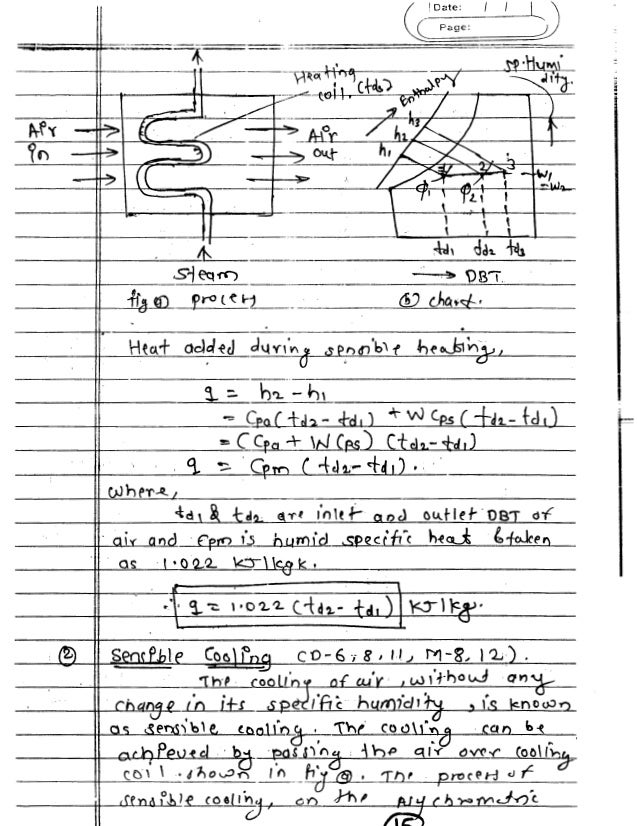 Date: / /
Page:
Heating
coil. (td3)
Air
in
Air
out
Steam
fig (a) process
Enthalpy
sp. Humi
dity.
h3
h2
h1
1 2 3
ϕ1 ϕ2
W1
=W2
td1 td2 td3
→ DBT
(b) chart.
Heat added during sensible heating,
q = h2 - h1
= Cpa (td2 - td1) + W Cps (td2 - td1)
= (Cpa + W Cps) (td2 - td1)
q = Cpm (td2 - td1).
where,
td1 & td2 are inlet and outlet DBT of
air and Cpm is humid specific heat & taken
as 1.022 kJ/kgk.
∴ q = 1.022 (td2 - td1) kJ/kg.
② Sensible Cooling (D-6, 8, 11, M-8, 12).
The cooling of air, without any
change in its specific humidity, is known
as sensible cooling. The cooling can be
achieved by passing the air over cooling
coil shown in fig (a). The process of
sensible cooling, on the psychrometric
15